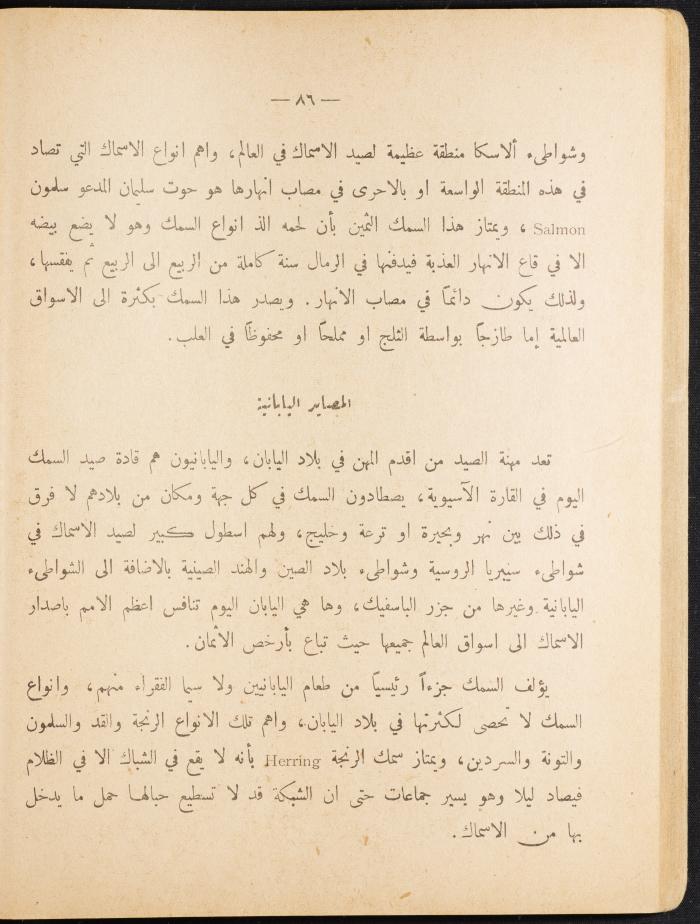 — ٨٦ —
وشواطىء ألاسكا منطقة عظيمة لصيد الاسماك في العالم، واهم انواع الاسماك التي تصاد
في هذه المنطقة الواسعة او بالاحرى في مصاب انهارها هو حوت سليمان المدعو سلمون
Salmon ، ويمتاز هذا السمك الثمين بأن لحمه الذ انواع السمك وهو لا يضع بيضه
الا في قاع الانهار العذبة فيدفنها في الرمال سنة كاملة من الربيع الى الربيع ثم يفقسها،
ولذلك يكون دائماً في مصاب الانهار. ويصدر هذا السمك بكثرة الى الاسواق
العالمية إما طازجاً بواسطة الثلج او مملحاً او محفوظاً في العلب.
المصايد اليابانية
تعد مهنة الصيد من اقدم المهن في بلاد اليابان، واليابانيون هم قادة صيد السمك
اليوم في القارة الآسيوية، يصطادون السمك في كل جهة ومكان من بلادهم لا فرق
في ذلك بين نهر وبحيرة او ترعة وخليج، ولهم اسطول كبير لصيد الاسماك في
شواطىء سيبريا الروسية وشواطىء بلاد الصين والهند الصينية بالاضافة الى الشواطىء
اليابانية وغيرها من جزر الباسفيك، وها هي اليابان اليوم تنافس اعظم الامم باصدار
الاسماك الى اسواق العالم جميعها حيث تباع بأرخص الأثمان.
يؤلف السمك جزءاً رئيسياً من طعام اليابانيين ولا سيما الفقراء منهم، وانواع
السمك لا تحصى لكثرتها في بلاد اليابان، واهم تلك الانواع الرنجة والقد والسلمون
والتونة والسردين، ويمتاز سمك الرنجة Herring بأنه لا يقع في الشباك الا في الظلام
فيصاد ليلا وهو يسير جماعات حتى ان الشبكة قد لا تستطيع حبالها حمل ما يدخل
بها من الاسماك.